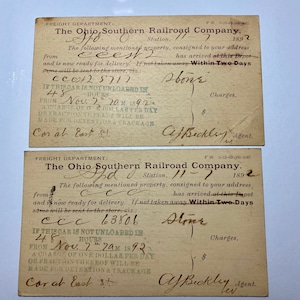 FREIGHT DEPARTMENT.
The Ohio Southern Railroad Company,
Station, 1892
The following mentioned property, consigned to your address
has arrived at this port
and is now ready for delivery. If not taken away Within Two Days
will be sent to the store, &c.
Stone
IF THIS CAR IS NOT UNLOADED IN
48 HOURS
Charges,
FROM Nov. 7" 7a m 1892
A CHARGE OF ONE DOLLAR PER DAY
OR FRACTION THEREOF WILL BE
MADE AS DETENTION & TRACKAGE
Car at East St
Agent.
FREIGHT DEPARTMENT.
The Ohio Southern Railroad Company,
Station, 11-7 1892
The following mentioned property, consigned to your address
has arrived at this port
and is now ready for delivery. If not taken away Within Two Days
will be sent to the store, &c.
ccc 63806 Stone
IF THIS CAR IS NOT UNLOADED IN
48 HOURS
Charges,
FROM Nov. 7" 7a m 1892
A CHARGE OF ONE DOLLAR PER DAY
OR FRACTION THEREOF WILL BE
MADE AS DETENTION & TRACKAGE
Car at East St
Agent.